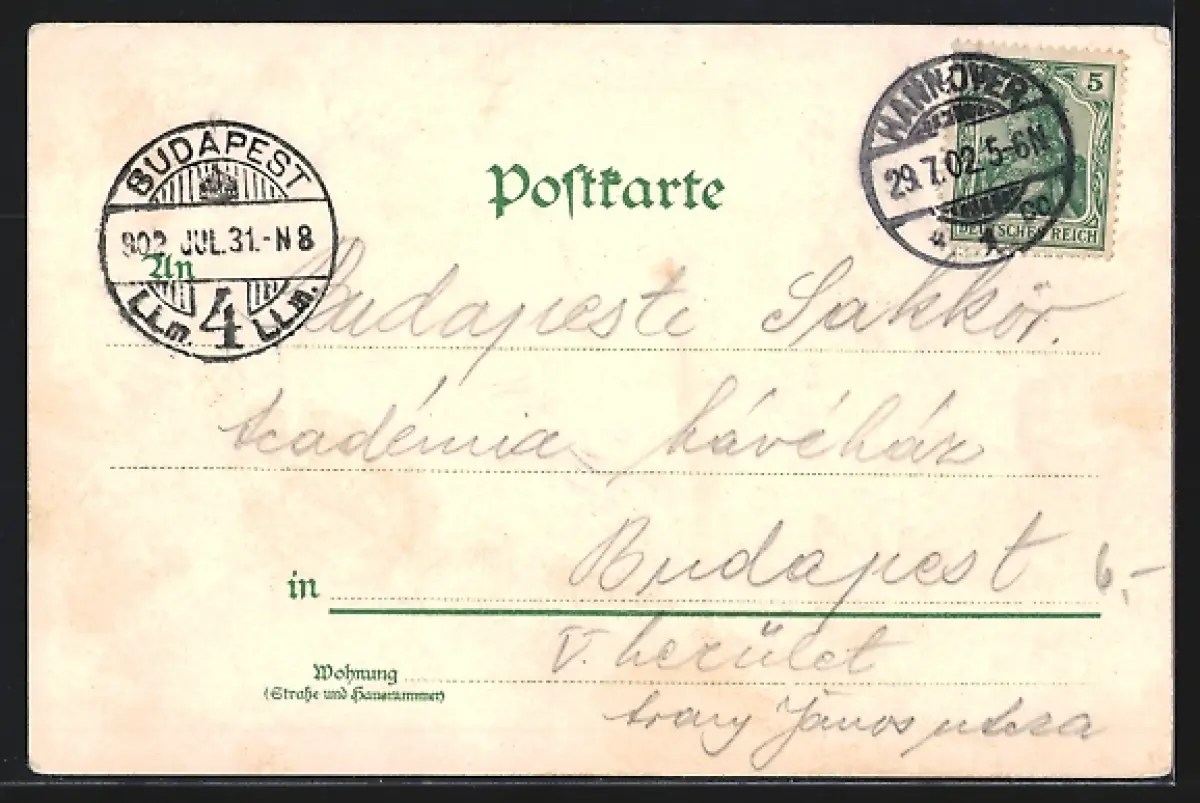 Postkarte
5
DEUTSCHES REICH
HANNOVER
29.7.02. 5-6N.
1.
BUDAPEST
902 JUL.31.-N 8
4
An
Budapesti Sakkör.
Academia kávéház
in Budapest
6,-
V. kerület
Wohnung
(Straße und Hausnummer)
Arany János utcza